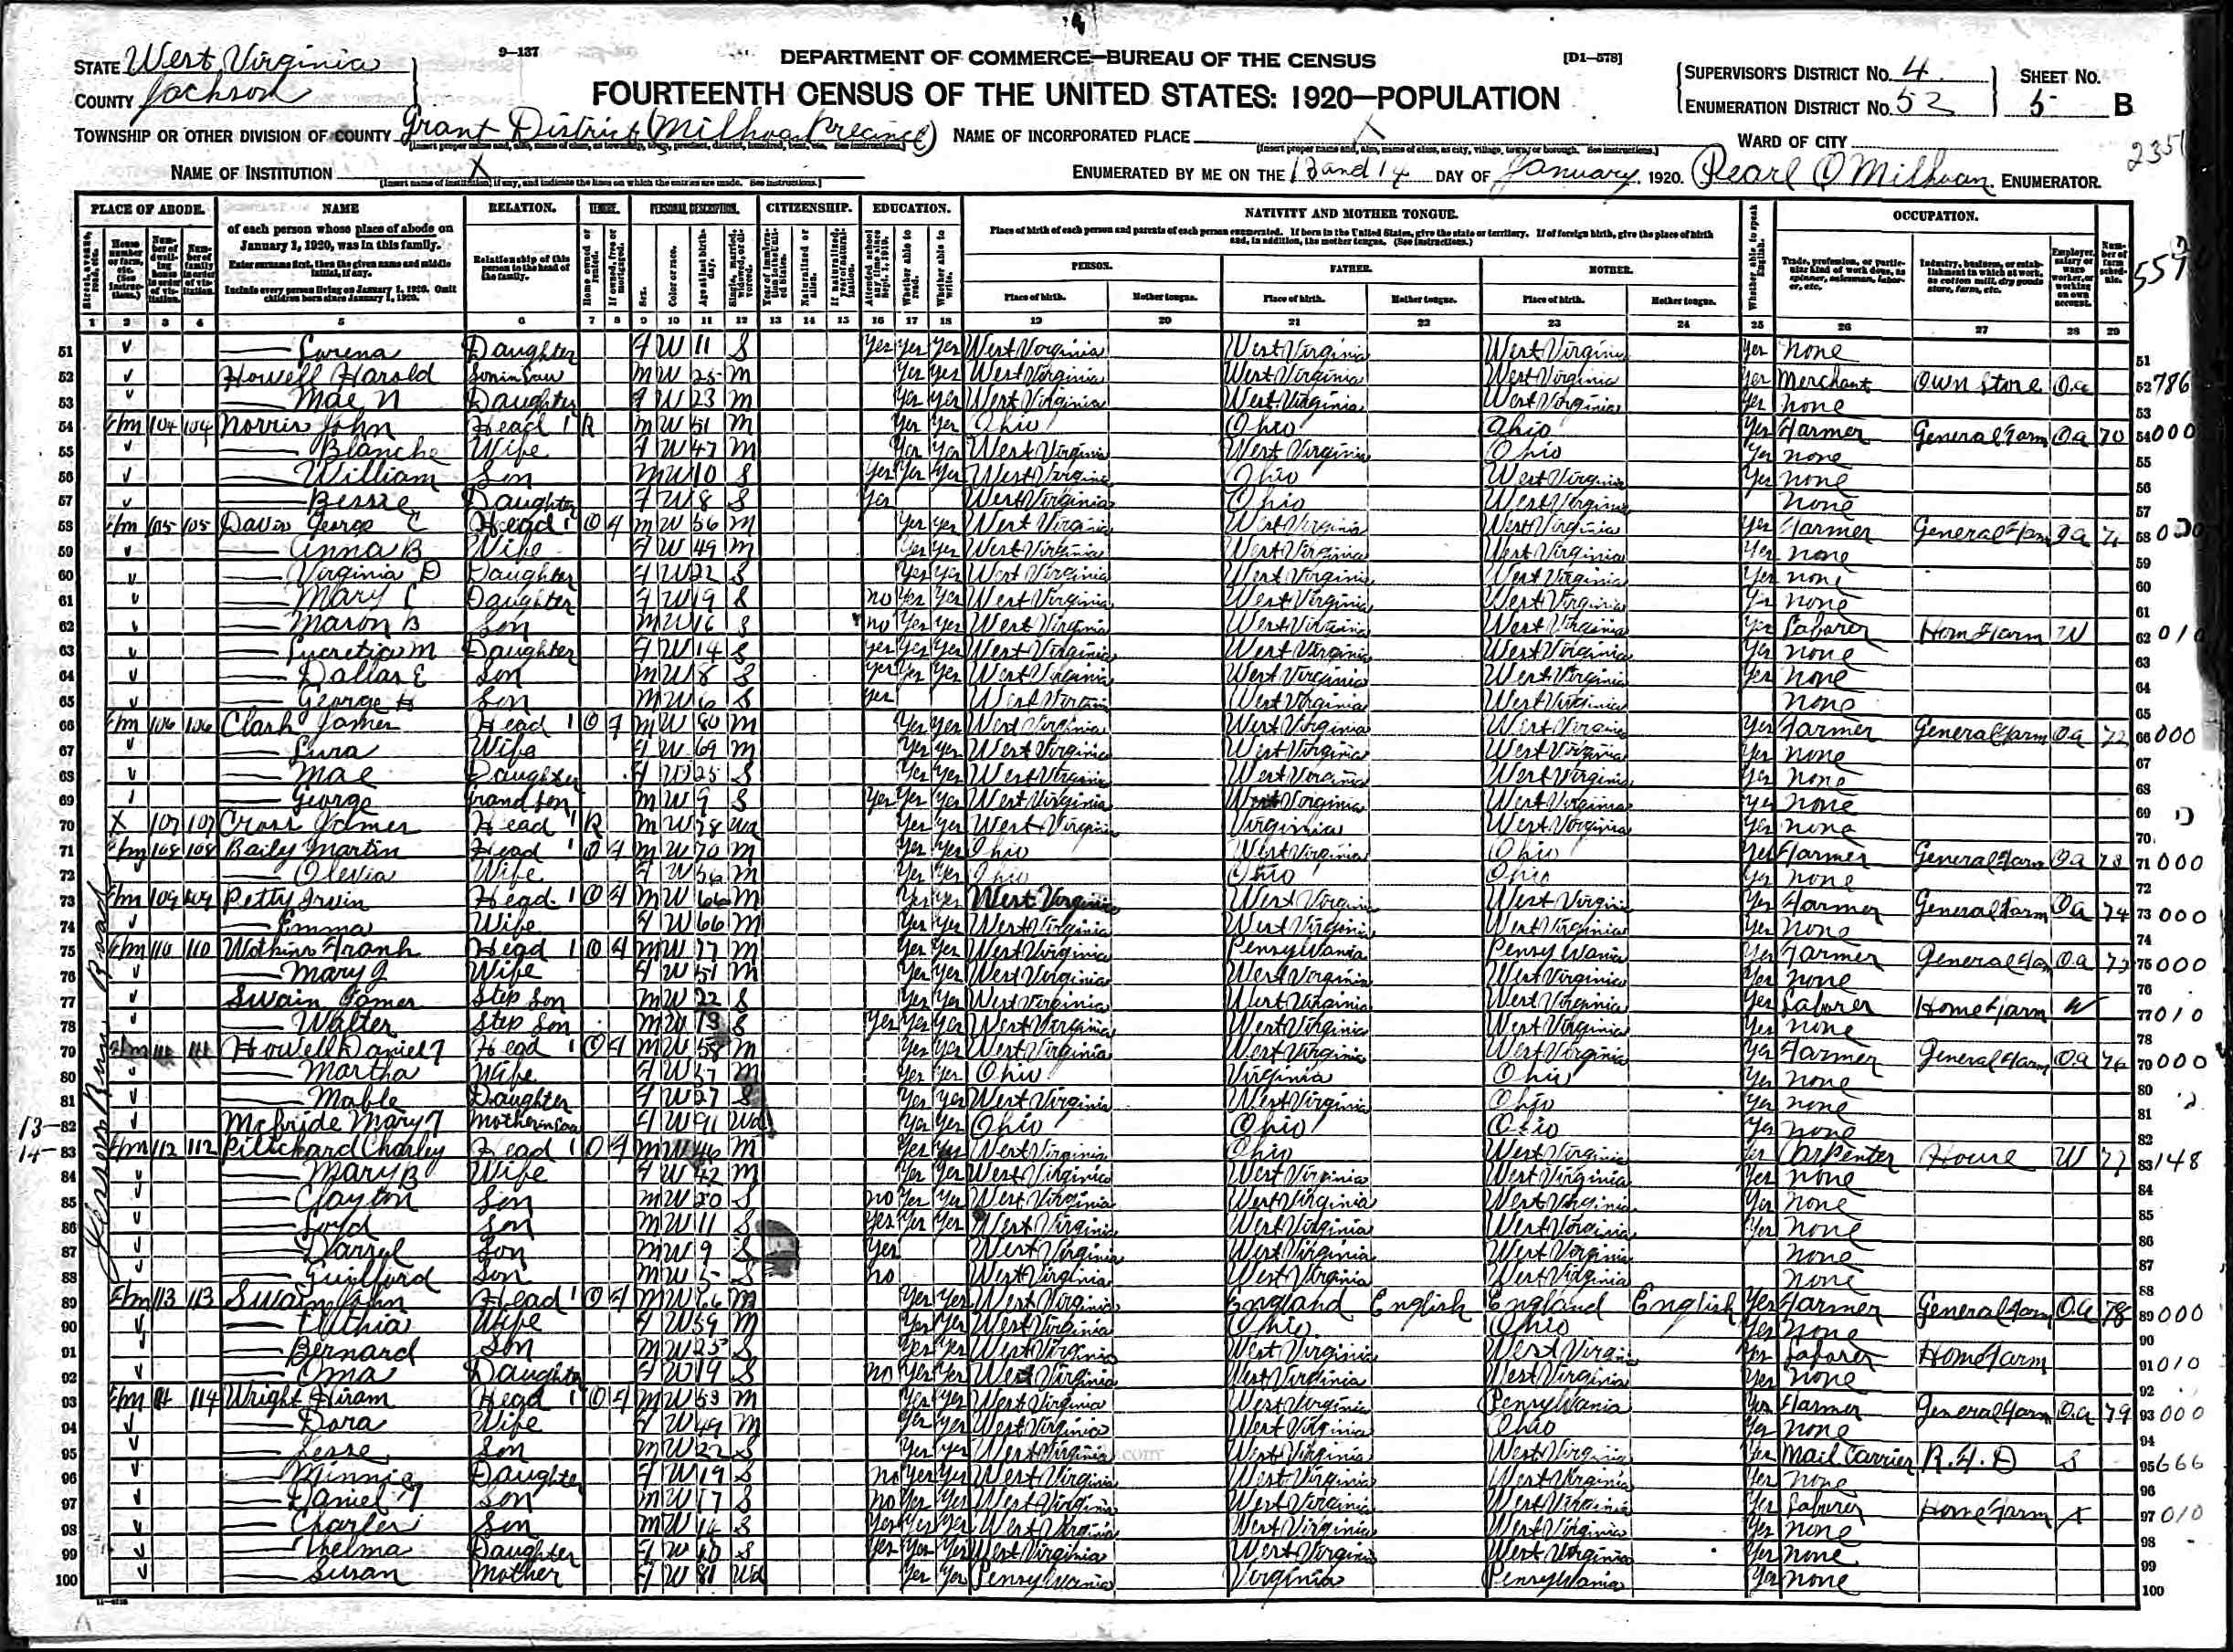 9-137
DEPARTMENT OF COMMERCE—BUREAU OF THE CENSUS
[D1-578]
STATE West Virginia
COUNTY Jackson
FOURTEENTH CENSUS OF THE UNITED STATES: 1920—POPULATION
SUPERVISOR'S DISTRICT No. 4
ENUMERATION DISTRICT No. 52
SHEET No. 5 B
TOWNSHIP OR OTHER DIVISION OF COUNTY Grant District (Milhoan Precinct)
NAME OF INCORPORATED PLACE X
WARD OF CITY
2351
NAME OF INSTITUTION X
ENUMERATED BY ME ON THE 13 and 14 DAY OF January, 1920. Pearl O Milhoan ENUMERATOR.
PLACE OF ABODE. NAME RELATION. TENURE. PERSONAL DESCRIPTION. CITIZENSHIP. EDUCATION. NATIVITY AND MOTHER TONGUE. OCCUPATION.
of each person whose place of abode on January 1, 1920, was in this family.
Enter surname first, then the given name and middle initial, if any.
Include every person living on January 1, 1920. Omit children born since January 1, 1920.
Relationship of this person to the head of the family.
Place of birth of each person and parents of each person enumerated. If born in the United States, give the state or territory. If of foreign birth, give the place of birth and, in addition, the mother tongue. (See instructions.)
PERSON. FATHER. MOTHER.
Place of birth. Mother tongue. Place of birth. Mother tongue. Place of birth. Mother tongue.
1 2 3 4 5 6 7 8 9 10 11 12 13 14 15 16 17 18 19 20 21 22 23 24 25 26 27 28 29
51 Lurena Daughter F W 11 S Yes Yes Yes West Virginia West Virginia West Virginia Yes None 51
52 Howell Harold Son in Law M W 25 M Yes Yes West Virginia West Virginia West Virginia Yes Merchant Own Store Oa 52 786
53 Mae N Daughter F W 23 M Yes Yes West Virginia West Virginia West Virginia Yes None 53
54 Fm 104 104 Norris John Head 1 R M W 51 M Yes Yes Ohio Ohio Ohio Yes Farmer General Farm Oa 70 54 000
55 Blanche Wife F W 47 M Yes Yes West Virginia West Virginia Ohio Yes None 55
56 William Son M W 10 S Yes Yes Yes West Virginia Ohio West Virginia Yes None 56
57 Bessie Daughter F W 8 S Yes West Virginia Ohio West Virginia None 57
58 Fm 105 105 Davis George C Head 1 O F M W 56 M Yes Yes West Virginia West Virginia West Virginia Yes Farmer General Farm Oa 71 58 000
59 Anna B Wife F W 49 M Yes Yes West Virginia West Virginia West Virginia Yes None 59
60 Virginia D Daughter F W 22 S Yes Yes West Virginia West Virginia West Virginia Yes None 60
61 Mary C Daughter F W 19 S No Yes Yes West Virginia West Virginia West Virginia Yes None 61
62 Mason B Son M W 16 S No Yes Yes West Virginia West Virginia West Virginia Yes Laborer Home Farm W 62 010
63 Lucretia M Daughter F W 14 S Yes Yes Yes West Virginia West Virginia West Virginia Yes None 63
64 Dallas E Son M W 8 S Yes Yes Yes West Virginia West Virginia West Virginia Yes None 64
65 George H Son M W 6 S Yes West Virginia West Virginia West Virginia None 65
66 Fm 106 106 Clark James Head 1 O F M W 80 M Yes Yes West Virginia West Virginia West Virginia Yes Farmer General Farm Oa 72 66 000
67 Lura Wife F W 69 M Yes Yes West Virginia West Virginia West Virginia Yes None 67
68 Mae Daughter F W 25 S Yes Yes West Virginia West Virginia West Virginia Yes None 68
69 George Grand Son M W 9 S Yes Yes Yes West Virginia West Virginia West Virginia Yes None 69
70 X 107 107 Cross James Head 1 R M W 78 Wd Yes Yes West Virginia Virginia West Virginia Yes None 70
71 Fm 108 108 Baily Martin Head 1 O F M W 70 M Yes Yes Ohio West Virginia Ohio Yes Farmer General Farm Oa 73 71 000
72 Olevia Wife F W 56 M Yes Yes Ohio Ohio Ohio Yes None 72
73 Fm 109 109 Petty Irvin Head 1 O F M W 66 M Yes Yes West Virginia West Virginia West Virginia Yes Farmer General Farm Oa 74 73 000
74 Emma Wife F W 66 M Yes Yes West Virginia West Virginia West Virginia Yes None 74
75 Fm 110 110 Watkins Frank Head 1 O F M W 77 M Yes Yes West Virginia Pensylvania Pensylvania Yes Farmer General Farm Oa 75 75 000
76 Mary J Wife F W 51 M Yes Yes West Virginia West Virginia West Virginia Yes None 76
77 Swain James Step Son M W 22 S Yes Yes West Virginia West Virginia West Virginia Yes Laborer Home Farm W 77 010
78 Walter Step Son M W 13 S Yes Yes Yes West Virginia West Virginia West Virginia Yes None 78
79 Fm 111 111 Howell Daniel T Head 1 O F M W 58 M Yes Yes West Virginia West Virginia West Virginia Yes Farmer General Farm Oa 76 79 000
80 Martha Wife F W 57 M Yes Yes Ohio Virginia Ohio Yes None 80
81 Mable Daughter F W 27 S Yes Yes West Virginia West Virginia Ohio Yes None 81
13— 82 McBride Mary T Mother in Law F W 91 Wd Yes Yes Ohio Ohio Ohio Yes None 82
14— 83 Fm 112 112 Charley Head 1 O F M W 46 M Yes Yes West Virginia Ohio West Virginia Yes Carpenter House W 77 83 148
84 Mary B Wife F W 42 M Yes Yes West Virginia West Virginia West Virginia Yes None 84
85 Clayton Son M W 20 S No Yes Yes West Virginia West Virginia West Virginia Yes None 85
86 Loyd Son M W 11 S Yes Yes Yes West Virginia West Virginia West Virginia Yes None 86
87 Darryl Son M W 9 S Yes West Virginia West Virginia West Virginia None 87
88 Guilford Son M W 5 S No West Virginia West Virginia West Virginia None 88
89 Fm 113 113 Swain John Head 1 O F M W 66 M Yes Yes West Virginia England English England English Yes Farmer General Farm Oa 78 89 000
90 Wife F W 59 M Yes Yes West Virginia Ohio Ohio Yes None 90
91 Bernard Son M W 25 S Yes Yes West Virginia West Virginia West Virginia Yes Laborer Home Farm 91 010
92 Oma Daughter F W 19 S No Yes Yes West Virginia West Virginia West Virginia Yes None 92
93 Fm 114 114 Wright Hiram Head 1 O F M W 53 M Yes Yes West Virginia West Virginia Pensylvania Yes Farmer General Farm Oa 79 93 000
94 Dora Wife F W 49 M Yes Yes West Virginia West Virginia Ohio Yes None 94
95 Jesse Son M W 22 S Yes Yes West Virginia West Virginia West Virginia Yes Mail Carrier R.F.D S 95 666
96 Minnie Daughter F W 19 S No Yes Yes West Virginia West Virginia West Virginia Yes None 96
97 Daniel T Son M W 17 S No Yes Yes West Virginia West Virginia West Virginia Yes Laborer Home Farm X 97 010
98 Charles Son M W 14 S Yes Yes Yes West Virginia West Virginia West Virginia Yes None 98
99 Thelma Daughter F W 10 S Yes Yes Yes West Virginia West Virginia West Virginia Yes None 99
100 Susan Mother F W 81 Wd Yes Yes Pensylvania Virginia Pensylvania Yes None 100